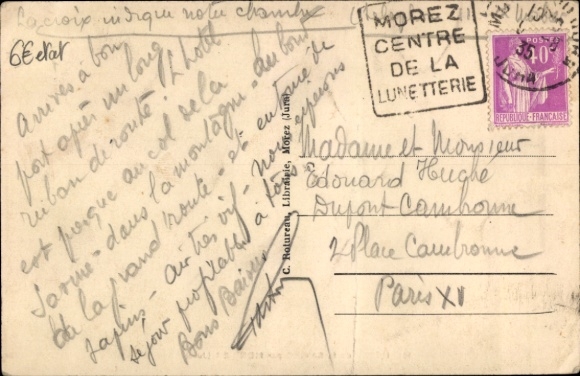 La croix indique notre chambre
6€ état
Arrivés à bon
port après un long
ruban de route! L'hôtel
est presque au col de la
Savine - dans la montagne au bord
de la grand'route - et entouré de
sapins - air très vif - nous espérons
séjour profitable à tous!
Bons Baisers
MOREZ
CENTRE
DE LA
LUNETTERIE
MOREZ
35
JURA
POSTES
40
REPUBLIQUE-FRANÇAISE
C. Rotureau, Librairie, Morez (Jura)
Madame et Monsieur
Edouard Hughé
Dupont-Cambronne
2 Place Cambronne
Paris XV